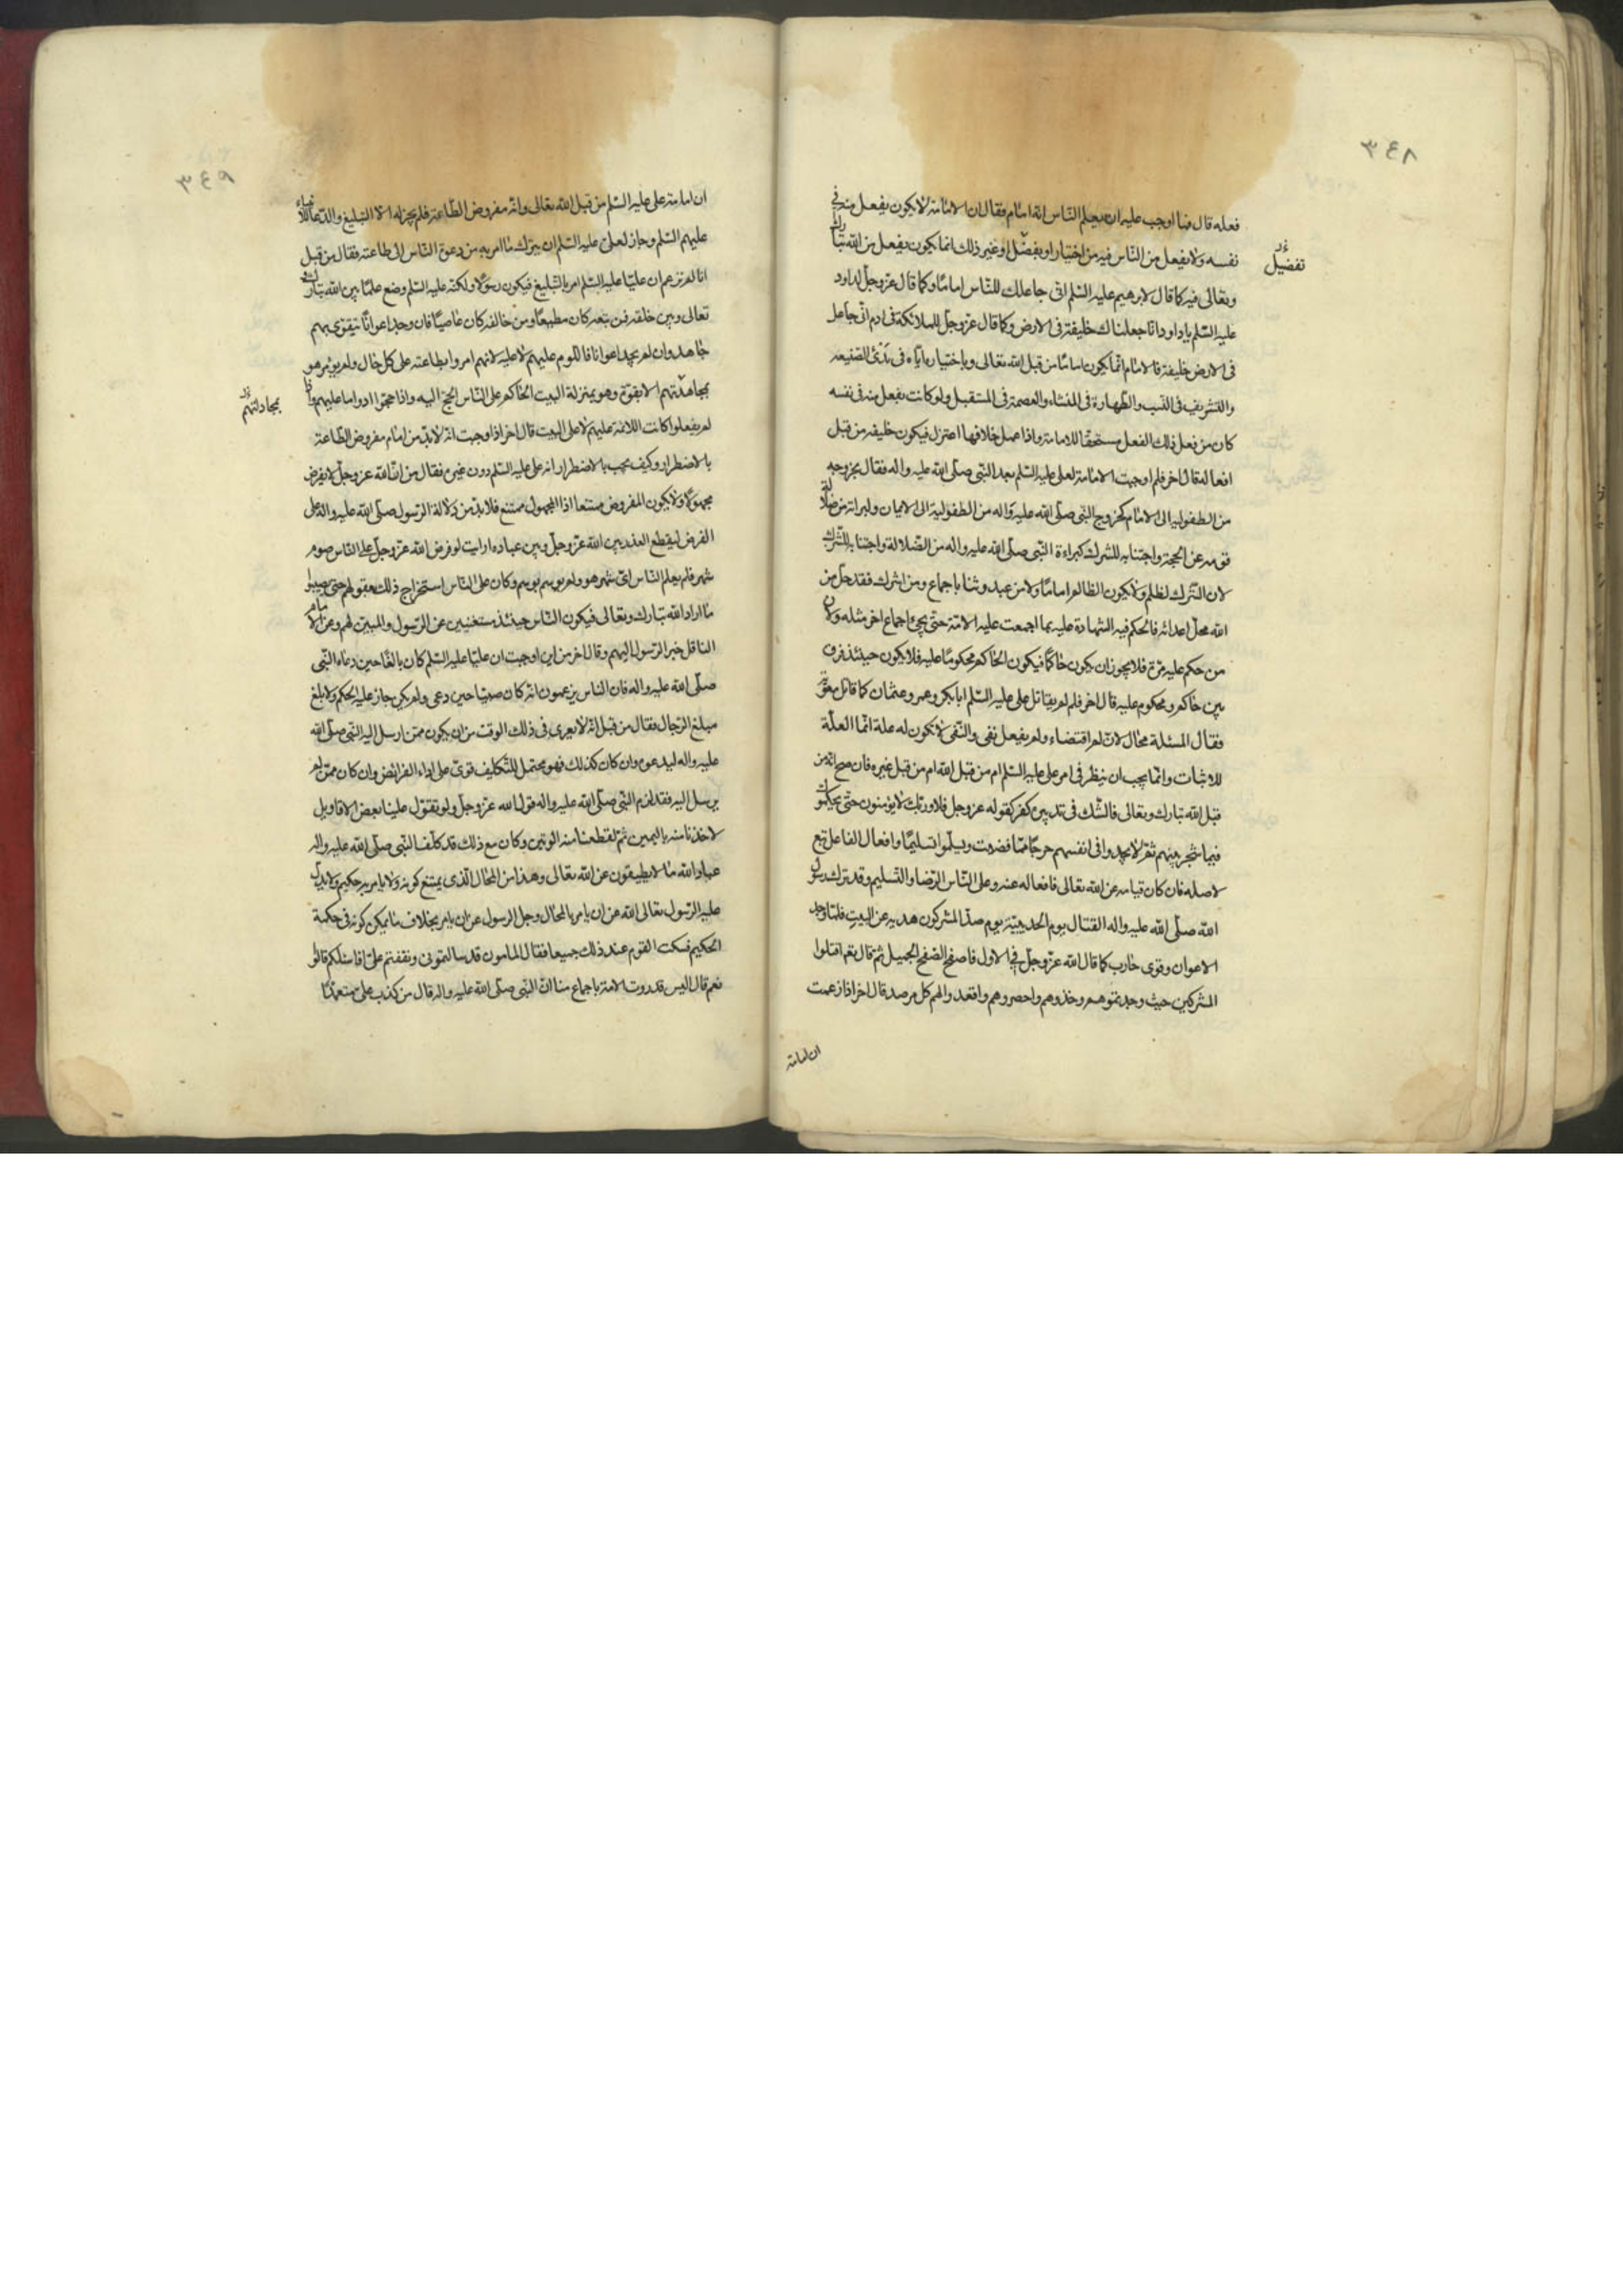 ٣٤٨
فعله قال فما اوجب عليه ان يعلم الناس انه امام فقال ان الامامة لا يكون بفعل منه في
نفسه ولا بفعل من الناس فيه من اختيار او تفضل او غير ذلك انما يكون بفعل من الله تبارك
تفضيل
وتعالى فيه كما قال لابرهيم عليه السلم انى جاعلك للناس اماما وكما قال عز وجل لداود
عليه السلم يا داود انا جعلناك خليفة فى الارض وكما قال عز وجل للملائكة فى ادم انى جاعل
فى الارض خليفة فالامام انما يكون اماما من قبل الله تعالى وباختياره اياه فى بدئ الصنيعه
والتشريف فى النسب والطهارة فى المنشاء والعصمة فى المستقبل ولو كانت بفعل منه فى نفسه
كان من فعل ذلك الفعل مستحقا للامامة واذا عمل خلافها اعتزل فيكون خليفه من قبل
افعاله قال اخر فلم اوجبت الامامة لعلى عليه السلم بعد النبى صلى الله عليه واله فقال لخروجه
من الطفولية الى الايمان كخروج النبى صلى الله عليه واله من الطفولية الى الايمان والبرائة من ضلالة
قومه عن الحجة واجتنابه للشرك كبراءة النبى صلى الله عليه واله من الضلالة واجتنابه للشرك
لان الشرك لظلم ولا يكون الظالم اماما ولا من عبد وثنا باجماع ومن اشرك فقد حل من
الله محل اعدائه فالحكم فيه الشهادة عليه بما اجمعت عليه الامة حتى يجئ اجماع اخر مثله ولان
من حكم عليه مرة فلا يجوز ان يكون حاكما فيكون الحاكم محكوما عليه فلا يكون حينئذ فرق
بين حاكم ومحكوم عليه قال اخر فلم لم يقاتل على عليه السلم ابا بكر وعمر وعثمان كما قاتل معوية
فقال المسئلة محال لان لم اقتضاء ولم يفعل نفى والنفى لا تكون له علة انما العلة
للاثبات وانما يجب ان ينظر فى امر على عليه السلم ام من قبل الله ام من قبل غيره فان صح انه من
قبل الله تبارك وتعالى فالشك فى تدبيره كفر كقوله عز وجل فلا وربك لا يؤمنون حتى يحكموك
فيما شجر بينهم ثم لا يجدوا فى انفسهم حرجا مما قضيت ويسلموا تسليما وافعال الفاعل تبع
لاصله فان كان قيامه عن الله تعالى فافعاله عنه وعلى الناس الرضا والتسليم وقد ترك رسول
الله صلى الله عليه واله القتال يوم الحديبية يوم صد المشركون هديه عن البيت فلما وجد
الاعوان وقوى حارب كما قال الله عز وجل فى الاول فاصفح الصفح الجميل ثم قال نعم اقتلوا
المشركين حيث وجدتموهم وخذوهم واحصروهم واقعدوا لهم كل مرصد قال اخر اذا زعمت
ان امامة
٣٤٩
ان امامة على عليه السلم من قبل الله تعالى وانه مفروض الطاعة فلم يجز له الا التبليغ والدعا للانبياء
عليهم السلم وجاز لعلى عليه السلم ان يترك ما امر به من دعوة الناس الى طاعته فقال من قبل
انا لم نزعم ان عليا عليه السلم امر بالتبليغ فيكون رسولا ولكنه عليه السلم وضع علما بين الله تبارك و
تعالى وبين خلقه فمن تبعه كان مطيعا ومن خالفه كان عاصيا فان وجد اعوانا يتقوى بهم
جاهد وان لم يجد اعوانا فاللوم عليهم لا عليه لانهم امروا بطاعته على كل حال ولم يؤمر هو
بمجاهدتهم الا بقوة وهو بمنزلة البيت الحاكم على الناس الحج اليه واذا حجوا ادوا ما عليهم واذا
بمجادلتهم
لم يفعلوا كانت اللائمة عليهم لا على البيت قال اخر اذا اوجبت انه لا بد من امام مفروض الطاعة
بالاضطرار وكيف يجب بالاضطرار انه على عليه السلم دون غيره فقال من ان الله عز وجل لا يفرض
مجهولا ولا يكون المفروض ممتنعا اذا المجهول ممتنع فلا بد من دلالة الرسول صلى الله عليه واله على
الفرض ليقطع العذر بين الله عز وجل وبين عباده ارايت لو فرض الله عز وجل على الناس صوم
شهر فلم يعلم الناس اى شهر هو ولم يوسم بوسم وكان على الناس استخراج ذلك بعقولهم حتى يصيبوا
ما اراد الله تبارك وتعالى فيكون الناس حينئذ مستغنيين عن الرسول والمبين لهم وعن الامام
الناقل خبر الرسول اليهم وقال اخر من اين اوجبت ان عليا عليه السلم كان بالغا حين دعاه النبى
صلى الله عليه واله فان الناس يزعمون انه كان صبيا حين دعى ولم يكن جاز عليه الحكم ولا بلغ
مبلغ الرجال فقال من قبل انه لا يعرى فى ذلك الوقت من ان يكون ممن ارسل اليه النبى صلى الله
عليه واله ليدعوه وان كان كذلك فهو محتمل للتكليف قوى على اداء الفرائض وان كان ممن لم
يرسل اليه فقد لزم النبى صلى الله عليه واله قول الله عز وجل ولو تقول علينا بعض الاقاويل
لاخذنا منه باليمين ثم لقطعنا منه الوتين وكان مع ذلك قد كلف النبى صلى الله عليه واله
عباد الله ما لا يطيقون عن الله تعالى وهذا من المحال الذى يمتنع كونه ولا يامر به حكيم ولا يدل
عليه الرسول تعالى الله عن ان يامر بالمحال وجل الرسول عن ان يامر بخلاف ما يمكن كونه فى حكمة
الحكيم فسكت القوم عند ذلك جميعا فقال المامون قد سالتمونى ونقضتم على افاسئلكم قالوا
نعم قال اليس قد روت الامة باجماع منا ان النبى صلى الله عليه واله قال من كذب على متعمدا